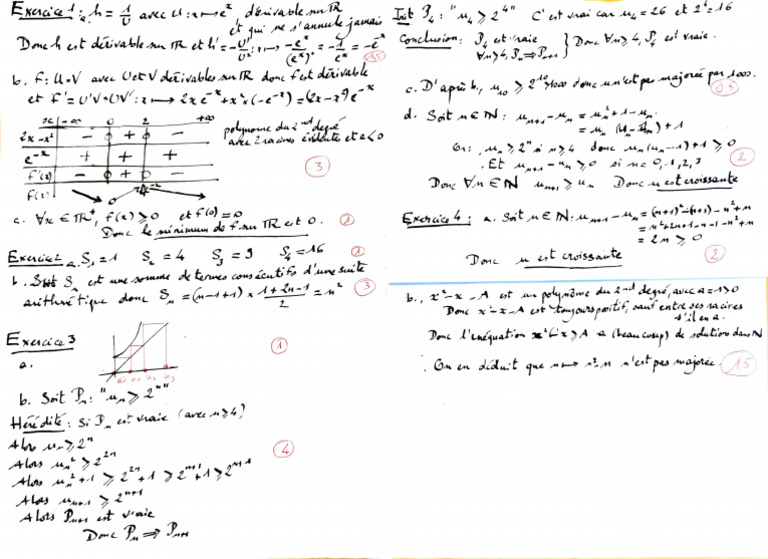 Exercice 1 : h = 1/U avec U : x ↦ e^x dérivable sur ℝ
et qui ne s'annule jamais
Donc h est dérivable sur ℝ et h' = -U'/U² : x ↦ -e^x/(e^x)² = -1/e^x = -e^-x
b. f : U×V avec U et V dérivables sur ℝ donc f est dérivable
et f' = U'V + UV' : x ↦ 2xe^-x + x² × (-e^-x) = (2x - x²)e^-x
x -∞ 0 2 +∞
2x-x² - 0 + 0 -
e^-x + + +
f'(x) - 0 + 0 -
f(x) 0
polynome du 2nd degré
avec 2 racines évidente et a<0
3
c. ∀x ∈ ℝ⁺, f(x) ⩾ 0 et f(0) = 0
Donc le minimum de f sur ℝ est 0.
1
Exercice 2 a. S₁ = 1 S₂ = 4 S₃ = 9 S₄ = 16
1
b. Sn est une somme de termes consécutifs d'une suite
arithmétique donc Sn = (n-1+1) × (1+2n-1)/2 = n²
3
Exercice 3
a.
1
b. Soit Pn : "un ⩾ 2^n"
Hérédité : Si Pn est vraie (avec n ⩾ 4)
Alors un ⩾ 2^n
Alors un² ⩾ 2^2n
Alors un² + 1 ⩾ 2^2n + 1 ⩾ 2^n+1 + 1 ⩾ 2^n+1
Alors un+1 ⩾ 2^n+1
Alors Pn+1 est vraie
Donc Pn ⟹ Pn+1
4
Init P₄ : "u₄ ⩾ 2⁴" C'est vrai car u₄ = 26 et 2⁴ = 16
Conclusion : P₄ est vraie
∀n ⩾ 4, Pn ⟹ Pn+1 } Donc ∀n ⩾ 4, Pn est vraie.
c. D'après b., u₁₀ ⩾ 2¹⁰ > 1000 donc u n'est pas majorée par 1000.
d. Soit n ∈ ℕ : un+1 - un = un² + 1 - un
= un (un - 1) + 1
Or : un ⩾ 2^n si n ⩾ 4 donc un(un - 1) + 1 ⩾ 0
Et un+1 - un ⩾ 0 si n = 0, 1, 2, 3
Donc ∀n ∈ ℕ un+1 ⩾ un Donc u est croissante
2
Exercice 4 : a. Soit n ∈ ℕ : un+1 - un = (n+1)² - (n+1) - n² + n
= n² + 2n + 1 - n - 1 - n² + n
= 2n ⩾ 0
Donc u est croissante
2
b. x² - x - A est un polynôme du 2nd degré, avec a = 1 > 0
Donc x² - x - A est toujours positif, sauf entre ses racines
s'il en a.
Donc l'inéquation x² - x ⩾ A a (beaucoup) de solution dans ℕ
On en déduit que n ↦ n² - n n'est pas majorée.
1.5